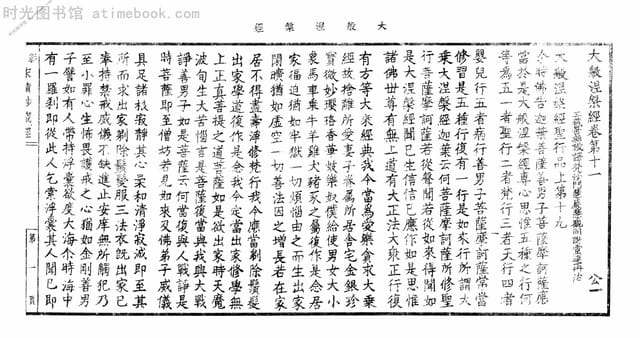 大般涅槃經
大般涅槃經卷第十一
公一
大般涅槃經聖行品上第十九
尒時佛告迦葉菩薩善男子菩薩摩訶薩應
當於是大般涅槃經專心思惟五種之行何
等為五一者聖行二者梵行三者天行四者
嬰兒行五者病行善男子菩薩摩訶薩常當
修習是五種行復有一行是如来行所謂大
乗大涅槃經迦葉云何菩薩摩訶薩所修聖
行菩薩摩訶薩若從聲聞若從如来得聞如
是大涅槃經聞已生信信已應作如是思惟
諸佛世尊有無上道有大正法大衆正行復
有方等大乗經典我今當為愛樂貪求大乗
經故捨離所愛妻子眷屬所居舍宅金銀珍
寶微妙瓔珞香華妓樂奴僕給使男女大小
象馬車乗牛羊雞犬豬豕之屬復作是念居
家逼迫猶如牢獄一切煩惱由之而生出家
閑曠猶如虛空一切善法因之增長若在家
居不得盡壽淨修梵行我今應當剃除鬚髮
出家學道復作是念我今定當出家修學無
上正真菩提之道菩薩如是欲出家時天魔
波旬生大苦惱言是菩薩復當與我興大戰
諍善男子如是菩薩云何當復與人戰諍是
時菩薩即至僧坊若見如来及佛弟子威儀
具足諸根寂靜其心柔和清淨寂滅即至其
所而求出家剃除鬚髮服三法衣既出家已
奉持禁戒威儀不缺進止安庠無所觸犯乃
至小罪心生怖畏護戒之心猶如金剛善男
子譬如有人帶持浮囊欲度大海尒時海中
有一羅剎即從此人乞索浮囊其人聞已即
影宋磧砂藏經
第一頁
时光图书馆 atimebook.com